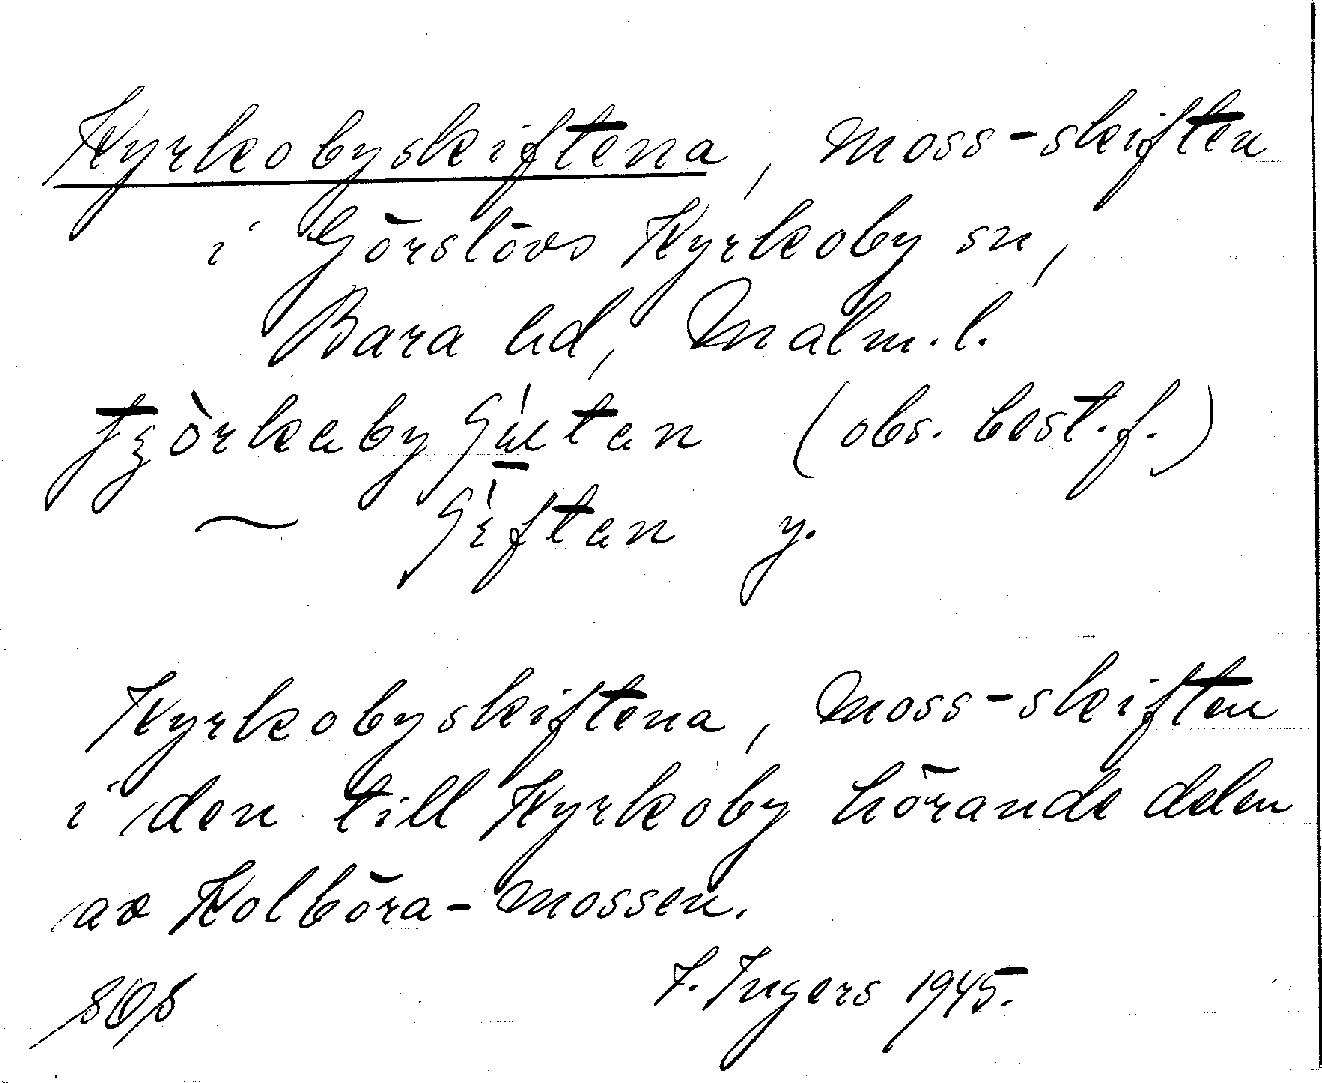 Kyrkobyskiftena, moss-skiften
i Görslövs Kyrkoby sn,
Bara hd, Malm.l.
(obs. best.f.)
~ y.
Kyrkobyskiftena, moss-skiften
i den till Kyrkoby hörande delen
av Kolböra-mossen.
I. Ingers 1945.